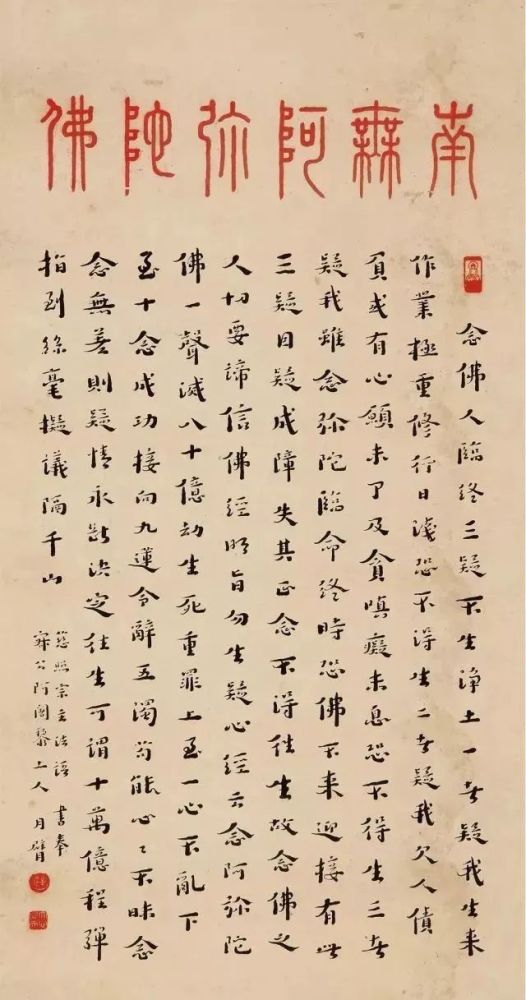 南無阿弥陀佛
念佛人臨終三疑不生淨土一者疑我生來
作業極重修行日淺恐不得生二者疑我欠人債
負或有心願未了及貪嗔癡未息恐不得生三者
疑我雖念弥陀臨命終時恐佛不來迎接有此
三疑因疑成障失其正念不得往生故念佛之
人切要諦信佛經明旨勿生疑心經云念阿弥陀
佛一聲滅八十億劫生死重罪上至一心不亂下
至十念成功接向九蓮令辭五濁苟能心〻不昧念
念無差則疑情永斷決定往生可謂十萬億程彈
指到絲毫擬議隔千山
慈照宗主法語 書奉
寂公阿闍黎上人 月臂